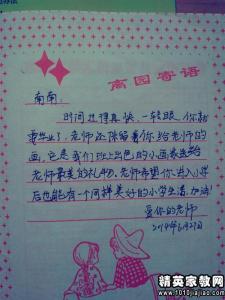 离园寄语
南南:
时间过得真快,一转眼你就
要毕业了,老师还保留着你给老师的
画,它是我们班上出色的小画家送给
老师最美的礼物。老师希望你进入小学
后也能有一个同样美好的小学生活。加油!
爱你的老师
2014年6月27日
精英家教网
www.1010jiajiao.com